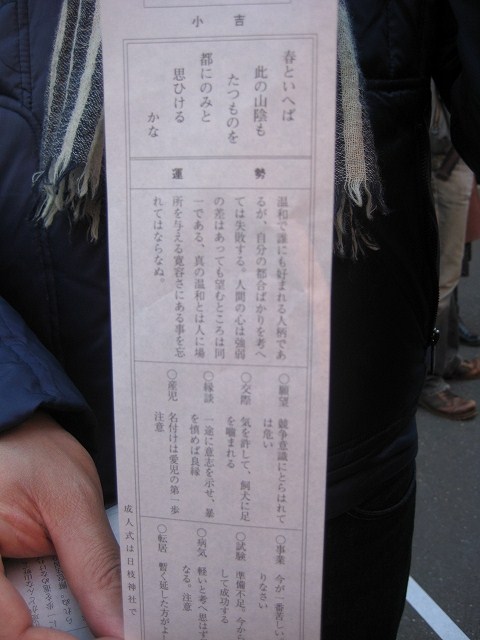 小吉
春といへば
此の山陰も
たつものを
都にのみと
思ひける
かな
運勢
温和で誰にも好まれる人柄であ
るが、自分の都合ばかりを考へ
ては失敗する。人間の心は強弱
の差はあっても望むところは同
一である、真の温和とは人に場
所を与える寛容さにある事を忘
れてはならなぬ。
○願望 競争意識にとらはれて
は危い
○交際 気を許して、飼犬に足
を噛まれる
○縁談 一途に意志を示せ、暴
を慎めば良縁
○産児 名付けは愛児の第一歩
注意
○事業 今が一番苦しい
りなさい
○試験 準備不足。今か
して成功する
○病気 軽いと考へ思はず
なる。注意
○転居 暫く延した方がよ
成人式は日枝神社で